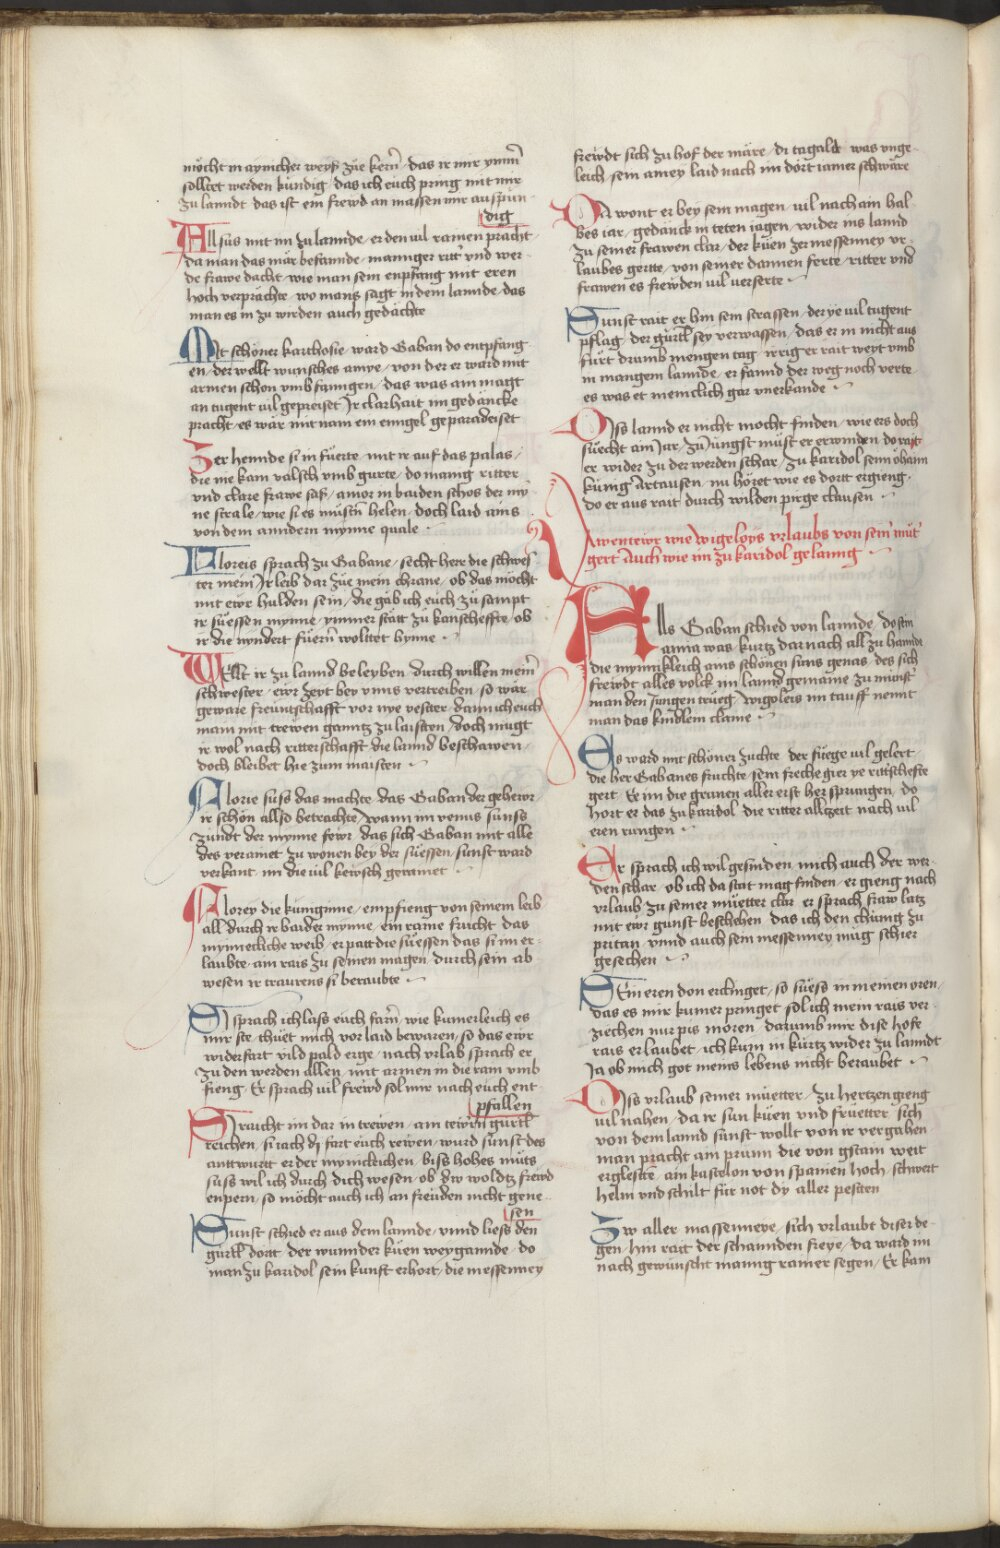 möcht in aynicher weyß züe kern̄ / das ir mir ymm̄
solltet werden kündig / das ich euch pring mit mir
zu lanndt das ist ein frewd an massen mir auspün
dig
Allsüs mit im zu lannde / er den vil ramen pracht
da man das mär befannde / maniger ritt̄ vnd wer
de frawe dacht / wie man sein enpfang mit eren
hoch verprächte / wo mans sagt in dem lannde / das
man es in zu wirden auch gedächte
Mit schöner karthosie / ward Gaban do entpfang
en / der wellt wunsches amye / von der er ward mit
armen schon vmbfanngen / das was ain magt
an tugent vil gepreiset Ir clarhait im gedäncke
pracht / es wär mit nam ein enngel geparadeiset
Zer hennde si in füerte / mit ir auf das palas /
die nie kam valsch vmb gurte / do manig ritter
vnd clare frawe saß / amor in baiden schos der my
ne strale / wie si es müstn̄ helen / doch laid ains
von dem anndern mynne quale
Floreis sprach zu Gabane / secht here die schwes
ter mein Ir leib dar züe mein chrane / ob das möcht
mit ewr hulden sein / die gäb ich euch zü sampt
ir süessen mynne / ymmer stätt zu kanscheffte / ob
ir die nyndert füern̄ wolltet hynne
Wellt ir zu lannd beleyben / durch willen mein̄
schwester / ewr zeyt bey vnns vertreiben / so wär
geware freuntschafft vor nye vester / dann ich euch
main mit trewen ganntz zu laisten / doch mügt
ir wol nach ritterschafft die lannd beschawen /
doch bleibet hie zum maisten
Florie süss das machte / das Gaban der gehewr
ir schön allso betrachte / wann im venus sunss
zündt der mynne fewr / das sich Gaban mit alle
des veramet zu wonen bey der süessen / sunst ward
verkant im die vil kewsch geramet
Florey die küniginne / empfieng von seinem leib
all durch ir baider mynne / ein raine frucht das
mynnecliche weib / er patt die süessen das si im er
laubte / ain rais zu seinen magen / durch sein ab
wesen ir traurens si beraubte
Si sprach ich lass euch farn̄ / wie kumerleich es
mir ste / thüet mich vor laid bewaren / so das ewr
widerfart vild pald erge / nach vrlab sprach er
zu den werden allen / mit armen in die rain vmb
fieng / Er sprach vil frewd sol mir nach euch ent
pfallen
Si raicht im dar in trewen / ain tewrn̄ gürtl̄
reichen / si rach dy fart euch rewen / wurd sunst des
anttwurtt er der mynicleichen / biss hohes müts
süss wil ich durch dich wesen / ob dw woldtz frewd
enpern / so möcht auch ich an freüden nicht gene
sen
Sunst schied er aus dem lannde / vnnd liess den
gürtl̄ dortt / der wunnder küen weygannde / do
man zu karidol sein kunft erhort / die messenney
frewdt sich zu hof der märe / di tagaldt was vnge
leich / sein amey laid nach im dort iamer schwäre
Da wont er bey sein magen / vil nach ain hal
bes iar / gedanck in teten iagen / wider ins lannd
zu seiner frawen clar / der küen zer messenney vr
laubes gertte / von seiner dannen ferte / ritter vnd
frawen es frewden vil verserte
Sunst rait er hin sein strassen / der ye vil tugent
pflag / der gürtl̄ sey verwassen / das er in nicht aus
fürt drumb mengen tag / irrig er rait weyt vmb
in mangem lannde / er fannd der weg noch verte
es was et nemlich gar vnerkande
Diss lannd er nicht mocht finden / wie ers doch
suecht ain Jar / zu Jungst müst er erwinden / do rait
er wider zu der werden schar / zu karidol senn öham
künig Artausen / nu höret wie es dortt ergieng /
do er aus rait durch wilden pirge clausen
Awentewr wie Wigeloys vrlaubs von sein̄ müt̄
gert Auch wie im zu karidol gelanng
Alls Gaban schied von lannde / do sein
amia was kurtz dar nach all zu hannde
die mynnikleich ains schönen suns genas / des sich
frewdt alles volck im lannd gemaine zu münst̄
man den Jungen trueg / wigoleis im tauff nennt
man das kindlein claine
Es ward mit schöner zuchte der füege vil gelert /
die her Gabanes fruchte / sein freche gier ye rittscheffte
gert / Ee im die grünen aller erst her sprungen / do
hort er das zu karidol die ritter alltzeit nach vil
eren rungen
Er sprach ich wil gesinden / mich auch der wer
den schar / ob ich da stat mag finden / er gieng nach
vrlaub zu seiner müetter clar / er sprach fraw latz
mit ewr gunst beschehen das ich den chünig zu
pritan / vnnd auch sein messenney müg schier
gesechen
Dein eren don erclinget / so süess in meinen oren /
das es mir kumer pringet / sol ich mein rais ver
ziechen nur pis moren / darumb mir dise hofe
rais erlaubet / ich kum in kürtz wider zu lanndt
Ja ob mich got meins lebens nicht beraubet
Diss vrlaub seiner müetter / zu hertzen gieng
vil nahen / da ir sun küen vnd früetter / sich
von dem lannd sunst wollt von ir vergahen
man pracht am prunn die von gstain weit
erglesten / ain kastelon von spanien hoch / schwert
helm vnd schilt für not dy aller pesten
Zw aller massenneye / sich vrlaubt diser de
gen / hin rait der schannden freye / da ward im
nach gewunscht manig rainer segen / Er kam